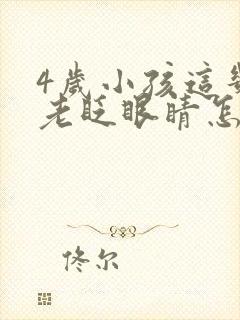 4歲小孩這
老眨眼睛怎
佟尔